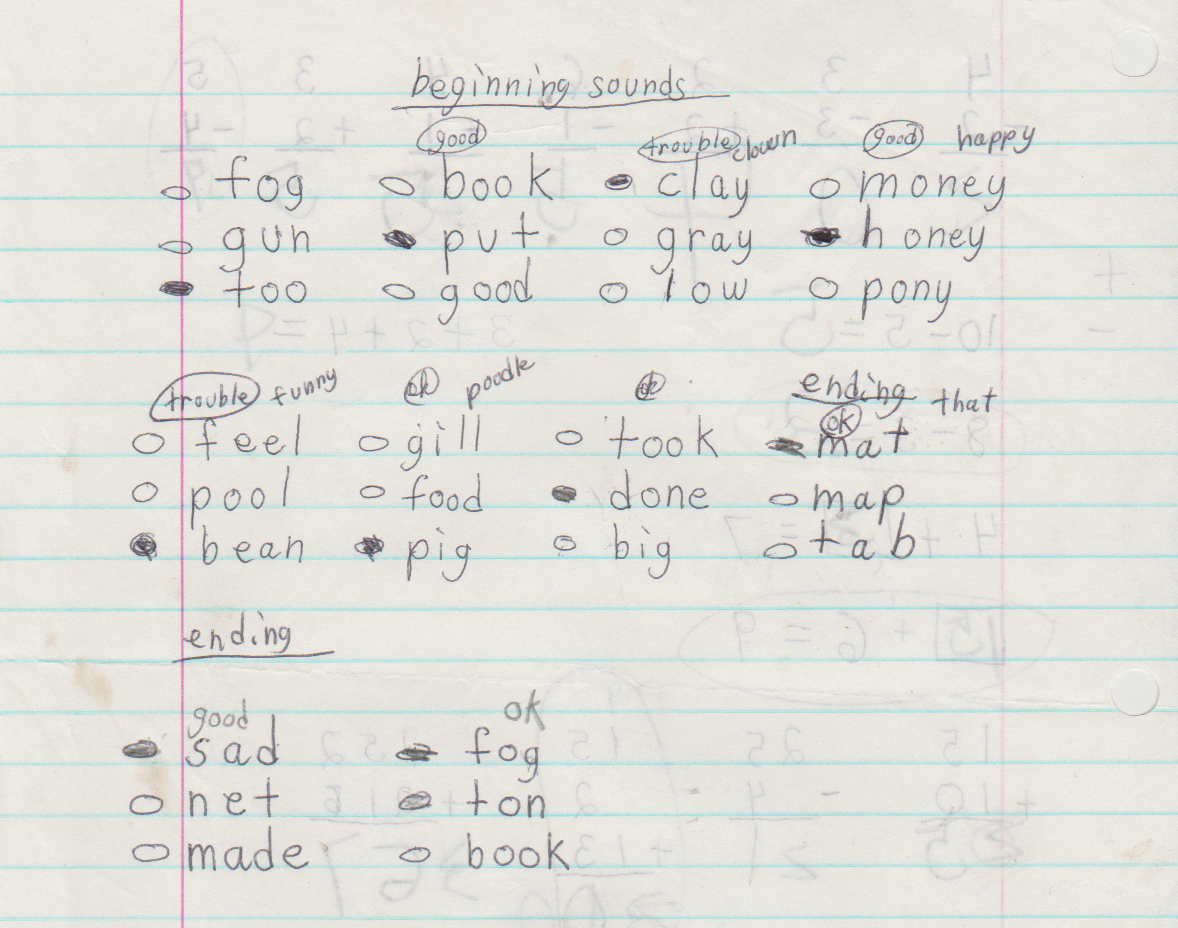 beginning sounds
good trouble clown good happy
fog book clay money
gun put gray honey
too good low pony
trouble funny ok poodle ok ending that
ok
feel gill took mat
pool food done map
bean pig big tab
ending
good ok
sad fog
net ton
made book